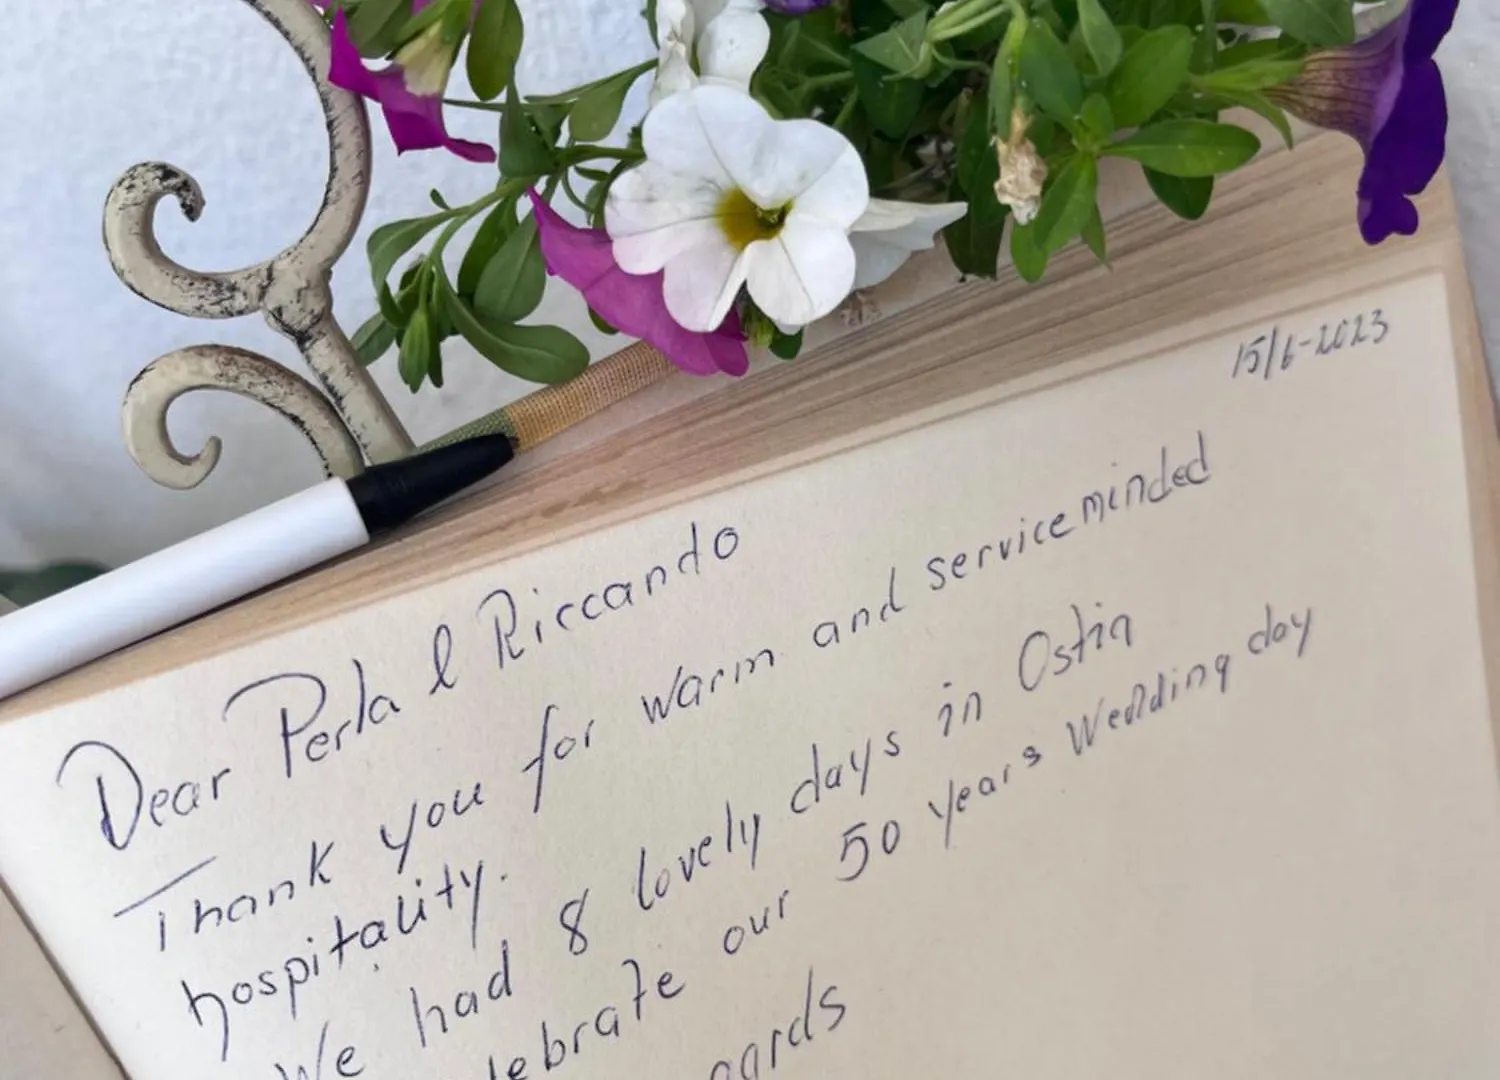 15/6-2023
Dear Perla & Riccardo
Thank you for warm and serviceminded
hospitality.
We had 8 lovely days in Ostia
lebrate our 50 years Wedding day
gards